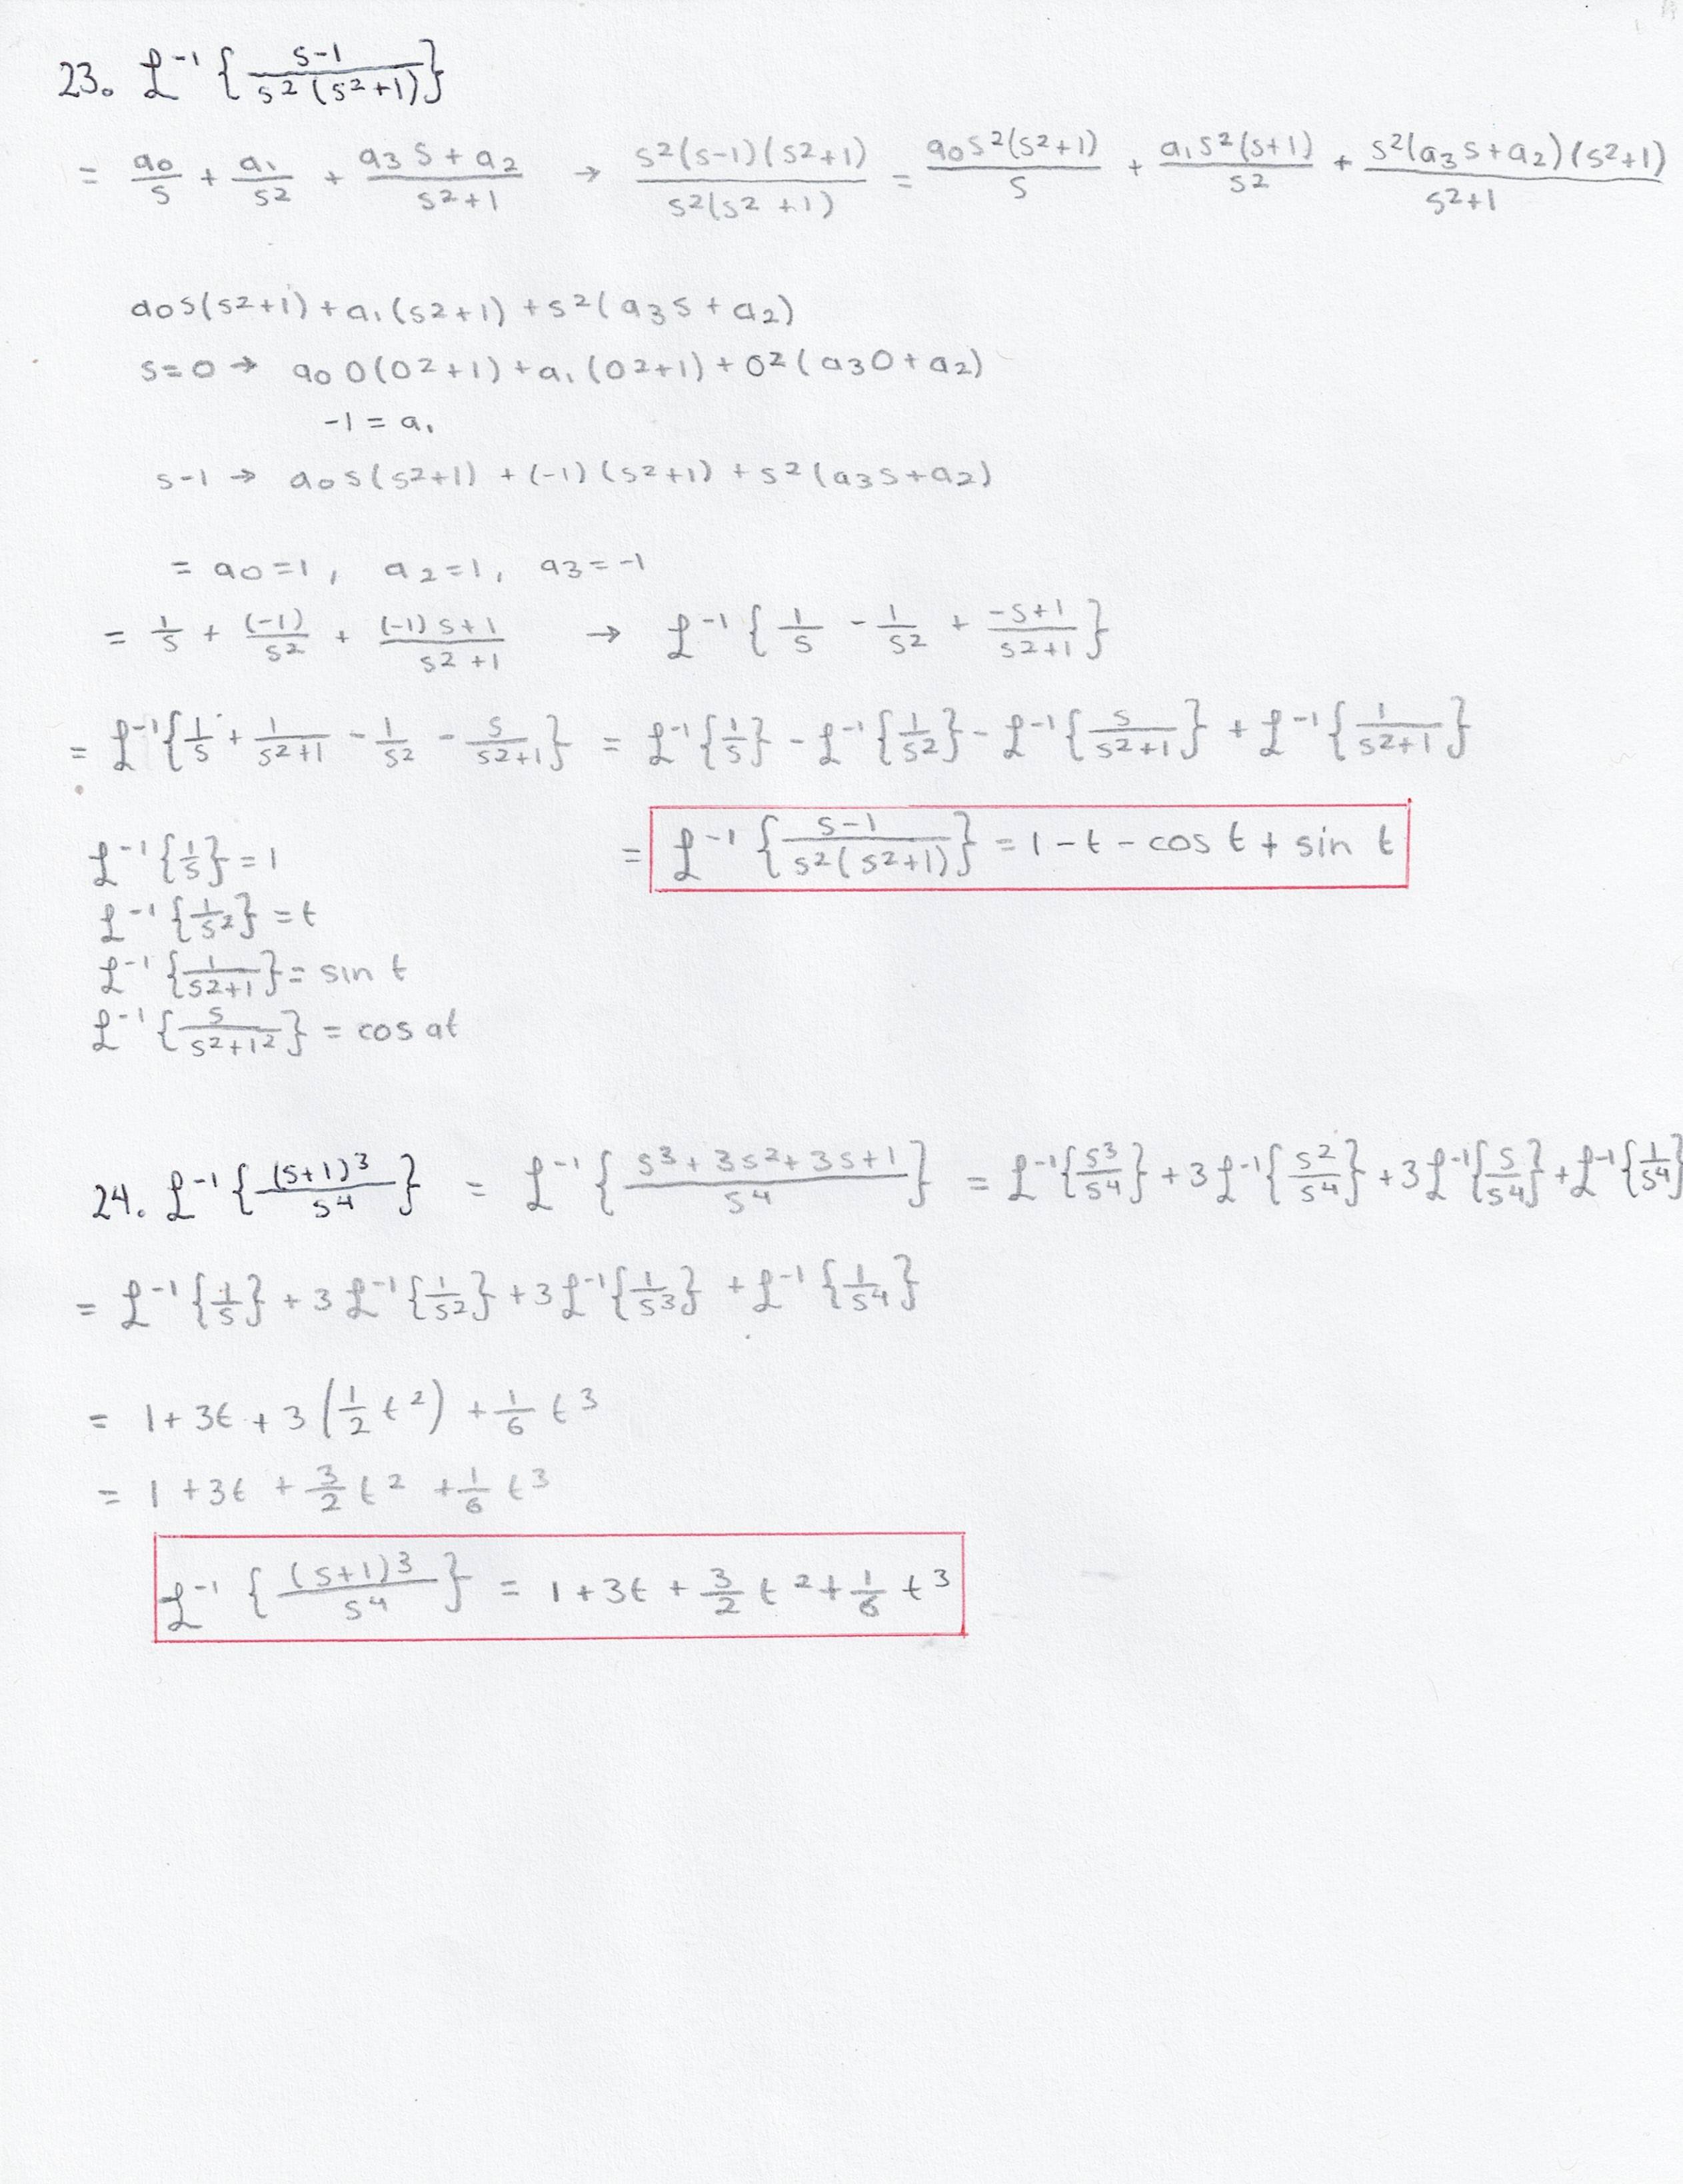 23. ℒ⁻¹{(s-1)/(s²(s²+1))}
= a₀/s + a₁/s² + (a₃s+a₂)/(s²+1) → s²(s-1)(s²+1)/(s²(s²+1)) = a₀s²(s²+1)/s + a₁s²(s+1)/s² + s²(a₃s+a₂)(s²+1)/(s²+1)
a₀s(s²+1)+a₁(s²+1)+s²(a₃s+a₂)
s=0 → a₀0(0²+1)+a₁(0²+1)+0²(a₃0+a₂)
-1 = a₁
s-1 → a₀s(s²+1)+(-1)(s²+1)+s²(a₃s+a₂)
= a₀=1, a₂=1, a₃=-1
= 1/s + (-1)/s² + ((-1)s+1)/(s²+1) → ℒ⁻¹{1/s - 1/s² + (-s+1)/(s²+1)}
= ℒ⁻¹{1/s + 1/(s²+1) - 1/s² - s/(s²+1)} = ℒ⁻¹{1/s} - ℒ⁻¹{1/s²} - ℒ⁻¹{s/(s²+1)} + ℒ⁻¹{1/(s²+1)}
= ℒ⁻¹{(s-1)/(s²(s²+1))} = 1-t-cos t+sin t
ℒ⁻¹{1/s}=1
ℒ⁻¹{1/s²}=t
ℒ⁻¹{1/(s²+1)}=sin t
ℒ⁻¹{s/(s²+1²)}=cos at
24. ℒ⁻¹{(s+1)³/s⁴} = ℒ⁻¹{(s³+3s²+3s+1)/s⁴} = ℒ⁻¹{s³/s⁴}+3ℒ⁻¹{s²/s⁴}+3ℒ⁻¹{s/s⁴}+ℒ⁻¹{1/s⁴}
= ℒ⁻¹{1/s}+3ℒ⁻¹{1/s²}+3ℒ⁻¹{1/s³}+ℒ⁻¹{1/s⁴}
= 1+3t+3(1/2 t²)+1/6 t³
= 1+3t+3/2 t²+1/6 t³
ℒ⁻¹{(s+1)³/s⁴} = 1+3t+3/2 t²+1/6 t³